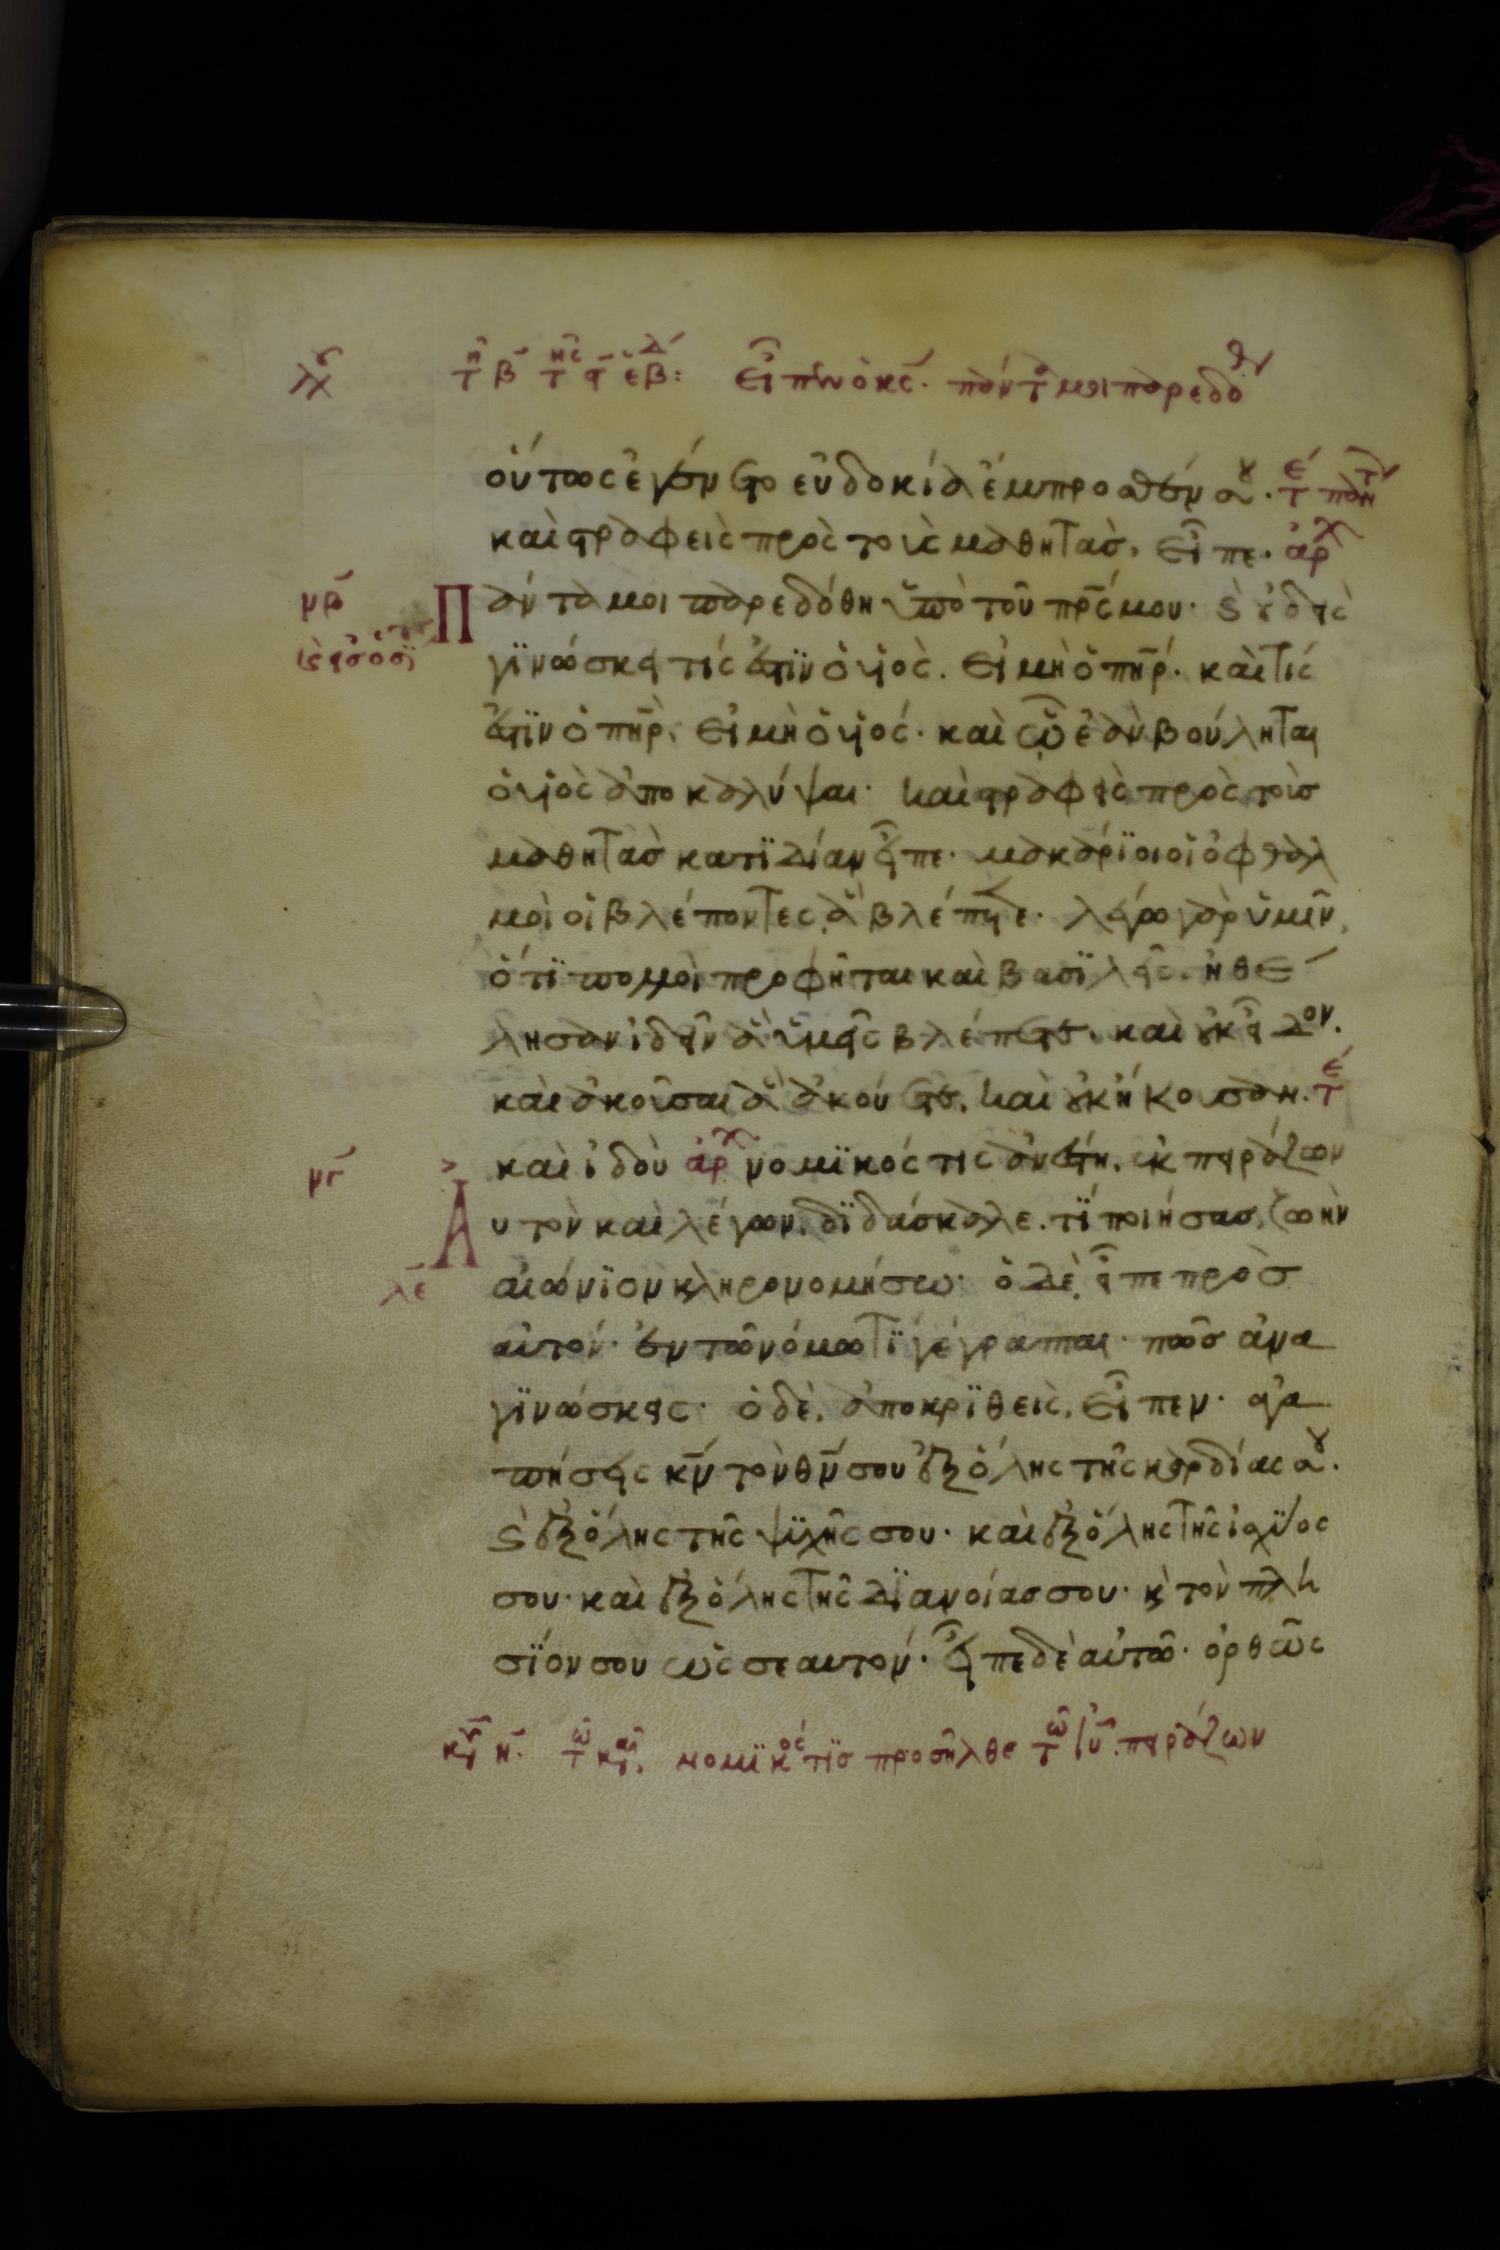 εἶπεν ὁ κ̅ς̅· πάντα μοι παρεδόθη
οὕτως ἐγένετο εὐδοκία ἔμπροσθέν σου·
καὶ στραφεὶς πρὸς τοὺς μαθητὰσ, εἶπε· ἀρχ
νβ Πάντα μοι παρεδόθη ὑπὸ τοῦ π̅ρ̅ς̅ μου· καὶ οὐδεὶς
γϊνώσκει τίς ἐστϊν ὁ υἱὸς. εἰ μὴ ὁ π̅η̅ρ̅· καὶ τίς
ἐστϊν ὁ π̅η̅ρ̅, εἰ μὴ ὁ υἱός· καὶ ᾧ ἐὰν βούληται
ὁ υἱὸς ἀποκαλύψαι· καὶ στραφεὶς πρὸς τοὺσ
μαθητὰσ κατϊδίαν εἶπε· μακάρϊοι οἱ ὀφθαλ
μοὶ οἱ βλέποντες ἃ βλέπετε· λέγω γὰρ ὑμῖν,
ὅτϊ πολλοὶ προφῆται καὶ βασϊλεῖς, ἠθέ
λησαν ἰδεῖν ἃ ὑμεῖς βλέπετε, καὶ οὐκ εἶδον.
καὶ ἀκοῦσαι ἃ ἀκούετε, καὶ οὐκ ἤκουσαν.
νγ καὶ ἰδοὺ ἀρχ νομϊκός τις ἀνέστη, ἐκπειράζων
Αυτὸν καὶ λέγων, δϊδάσκαλε. τϊ ποιήσασ, ζωὴν
λε αἰώνϊον κληρονομήσω· ὁ δὲ, εἶπε πρὸσ
αὐτόν· ἐν τῶ νόμω τϊ γέγραπται· πῶσ ἀνα
γϊνώσκεις· ὁ δὲ, ἀποκρϊθεὶς, εἶπεν· ἀγα
πήσεις κ̅ν̅ τὸν θ̅ν̅ σου ἐξ ὅλης τῆς καρδίας σου.
καὶ ἐξ ὅλης τῆς ψϊχῆς σου· καὶ ἐξ ὅλης τῆς ἰσχϋος
σου· καὶ ἐξ ὅλης τῆς δϊανοίας σου· κ τὸν πλη
σϊον σου ὡς σεαυτον· εἶπε δὲ αὐτῶ· ὀρθῶς
νομϊκός τϊσ προσῆλθε τῶ ι̅υ̅ πειράζων